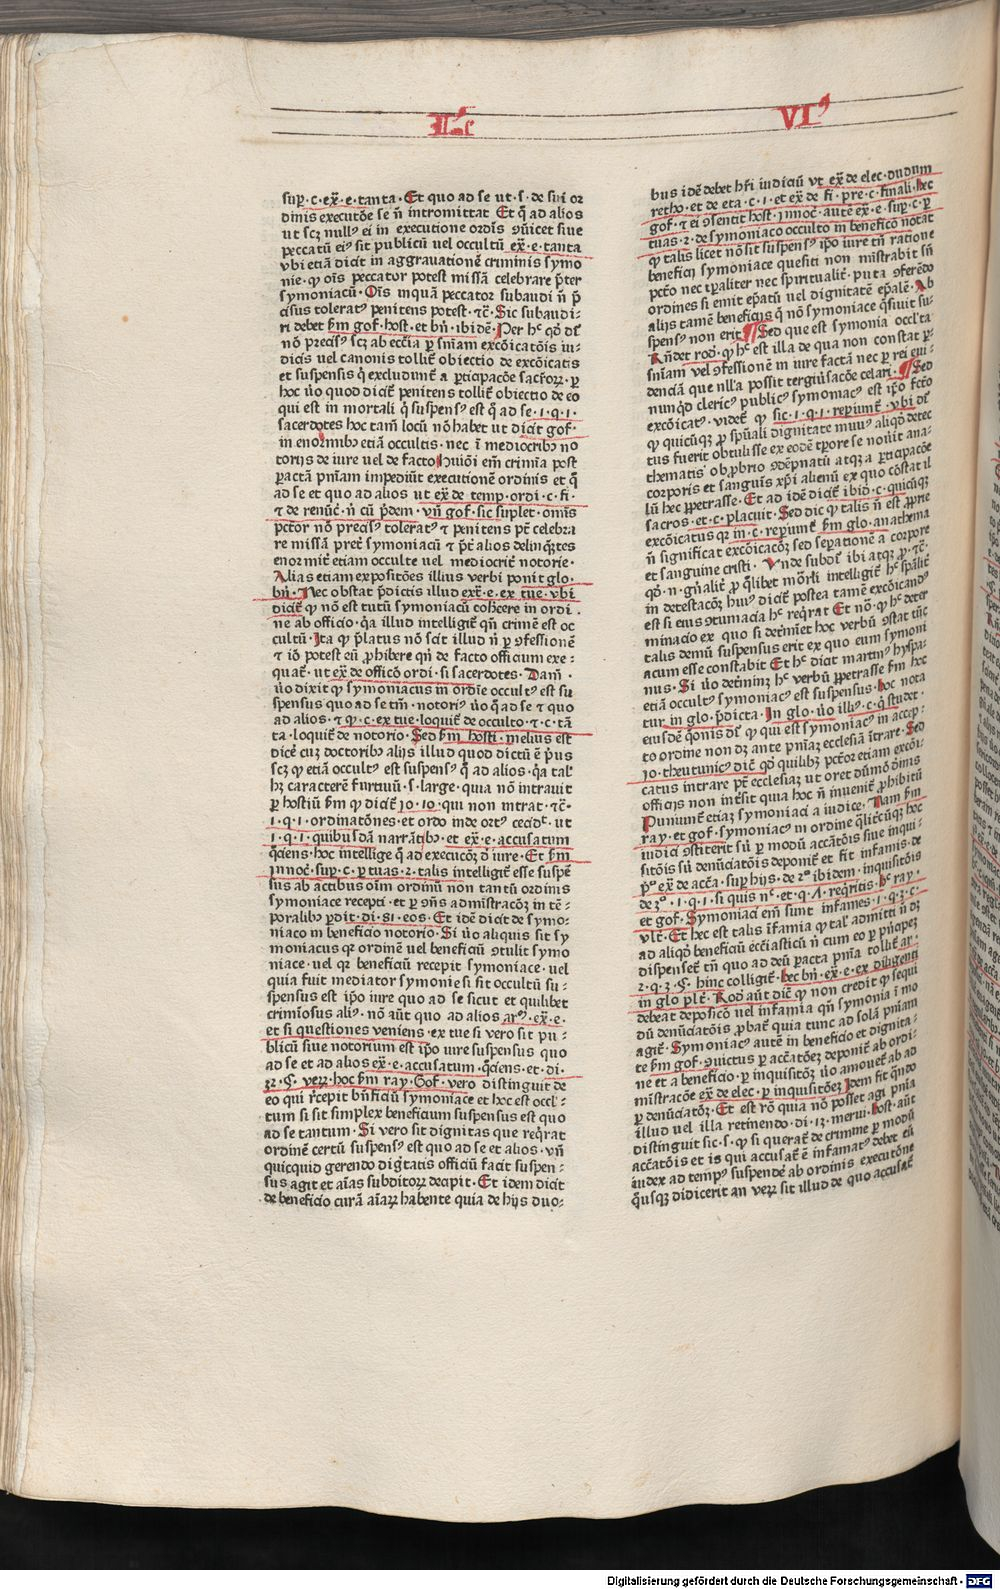 II
VIꝰ
sup̄·c·ex̄·e·tanta·Et quo ad se ut·s·de sui or
dinis executōe se n̄ intromittat Et q̄ ad alios
ut scꝫ nullꝰ ei in executione ordīs ꝯūicet siue
peccatū eiꝰ sit publicū uel occultū ex̄·e·tanta
vbi etiā dicit in aggrauationē criminis symo
nie·ꝙ oīs peccator potest missā celebrare p̄ter
symoniacū·Oīs inquā peccatoꝛ subaudi n̄ p̄
cisus toleratꝰ penitens potest·⁊c̄·Sic subaudi-
ri debet ẜm gof·host·et bn̄·ibidē·Per hͨ qd̄ dt̄
nō precisꝰ scꝫ ab ecc̄ia ꝑ sn̄iam excōicatōis iu-
dicis uel canonis tollit̄ obiectio de excōicatis
et suspensis q̄ excludunt̄ a ꝑticipacōe sacroꝝ·ꝑ
hoc ūo quod dicit̄ penitens tollit̄ obiectio de eo
qui est in mortali q̄ suspensꝰ est q̄ ad se·1·q·1·
sacerdotes hoc tam̄ locū nō habet ut dicit gof·
in enoꝛmibꝫ etiā occultis·nec ī mediocribꝫ no
torijs de iure uel de facto huiꝰmōi em̄ crimīa post
ꝑactā pn̄iam impediūt executionē ordinis et q̄
ad se et quo ad alios ut ex̄·de temp·ordi·c·fi·
⁊ de renūc̄·n̄ cū p̄dem·vn̄ gof·sic suplet·omīs
pctōr nō precisꝰ toleratꝰ ⁊ penitens pt̄ celebra
re missā pret̄ symoniacū ⁊ p̄t̄ alios delinq̄ntes
enormit̄ etiam occulte uel mediocrit̄ notorie·
Alias etiam expositōes illius verbi ponit glo·
bn̄·Nec obstat p̄dictis illud exͣ·e·ex tue·vbi
dicit̄ ꝙ nō est tutū symoniacū cohercere in ordi·
ne ab officio·q̄a illud intelligit̄ qn̄ crimē est oc
cultū·Ita ꝙ p̄latus nō scit illud n̄ ꝑ ꝯfessionē
⁊ iō potest eū ꝓhibere qn̄ de facto officium exe-
quat̄·ut ex̄ de officō ordi·si sacerdotes·Dam̄·
ūo dixit ꝙ symoniacus in ordīe occultꝰ est su
spensus quo ad se tm̄·notoriꝰ ūo q̄ ad se ⁊ quo
ad alios·⁊ ꝙ·c·ex tue·loquit̄ de occulto·⁊·c·tā
ta·loquit̄ de notorio·Sed ẜm hosti·melius est
dicē cuꝫ doctoribꝰ alijs illud quod dictū ē p̄us
scꝫ ꝙ etiā occultꝰ est suspensꝰ q̄ ad alios·q̄a talꝰ
hꝫ caracterē furtiuū·s·large·quia nō intrauit
per hostiū ẜm ꝙ dicit̄ io·10·qui non intrat·⁊c̄·
1·q·1·ordinatōnes·et ordo inde ortꝰ cecidͭ·ut
1·q·1·quibusdā narrātibꝫ·et ex̄·e·accusatum
q̄ciens·hoc intellige q̄ ad execucōꝫ d̄ iure·Et ẜm
innoc̄·sup·c·ꝑ tuas·2·talis intelligit̄ esse suspē
sus ab actibus oīm ordinū non tantū ordinis
symoniace recepti·et ꝑ ꝯn̄s admīstracōꝫ in tē-
poralibꝰ ꝑdit·di·81·eos·Et idē dicit de symo-
niaco in beneficio notorio·Si ūo aliquis sit sy
moniacus qꝛ ordinē uel beneficiū ꝯtulit symo
niace·uel qꝛ beneficiū recepit symoniace·uel
quia fuit mediator symonie si sit occultū su-
spensus est ip̄o iure quo ad se sicut et quilibet
crimīosus aliꝰ·nō aūt quo ad alios arꝰ·ex̄·e·
et si questiones veniens·ex tue si vero sit pu-
blicū siue notorium est ip̄o iure suspensus quo
ad se et ad alios ex̄·e·accusatum·q̄ciens·et·di·
32·§·verꝝ·hoc ẜm ray·Gof·vero distinguit de
eo qui r̄cepit bn̄ficiū symoniace et hoc est occl̄-
tum si sit simplex beneficium suspensus est quo
ad se tantum·Si vero sit dignitas que req̄rat
ordinē certū suspensꝰ est quo ad se et alios·vn̄
quicquid gerendo dig̅tatis officiū facit suspen-
sus agit et aīas subditoꝝ decipit·Et idem dicit
de beneficio curā aīaꝝ habente quia de hijs duo-
bus idē debet hr̄i iudiciū vt ex̄ de elec·dudum
retho·et de eta·c·1·et ex̄ de fi·pre·c·finali·hec
gof·⁊ ei ꝯsentit host·Innoc̄·autē ex̄·e·sup·c·ꝑ
tuas·2·de symoniaco occulto in beneficō notat
ꝙ talis licet nō sit suspensꝰ ip̄o iure tn̄ ratione
beneficij symoniace quesiti non mīstrabit sn̄
pctō nec tꝑaliter nec spiritualit̄·puta ꝯferēdo
ordines si emit ep̄atū uel dignitatē ep̄alē·Ab
alijs tamē beneficijs q̄ nō symoniace q̄siuit su-
spensꝰ non erit ¶Sed que est symonia occl̄ta
Rn̄det rod̄·ꝙ hͨ est illa de qua non constat ꝑ-
sn̄iam vel ꝯfessionē in iure factā nec ꝑ rei eui-
denciā que nll̄a possit tergiūsacōe celari·¶Sed
nunq̄d clericꝰ publicꝰ symoniacꝰ est ip̄o fcō
excōicatꝰ·videt̄ ꝙ sic·1·q·1·reꝑiunt̄·vbi dt̄
ꝙ quicūqꝫ ꝓ sp̄uali dignitate munꝰ aliqd̄ detec
tus fuerit obtulisse ex eodē tꝑore se nouit ana-
thematis obꝓbrio ꝯdēpnatū atqꝫ a ꝑticipacōe
corporis et sanguīs xp̄i alienū ex quo cōstat il
lū hec ꝑpetrasse·Et ad idē dicit̄ ibid·c·quicūqꝫ
sacros·et·c·placuit·Sed dic ꝙ talis n̄ est ꝓprie
excōicatus qꝛ in·c·reꝑiunt̄ ẜm glo·anathema
n̄ significat excōicacōꝫ sed seꝑationē a corpore
et sanguine cristi·Vnde subdt̄ ibi atqꝫ ꝓ·⁊c̄·
qd̄·n·gn̄alit̄ ꝓ q̄libet mōrli intelligit̄ hͨ sp̄alit̄
in detestacōꝫ huiꝰ dicit̄ postea tamē excōicandꝰ
est si eius ꝯtumacia hͨ req̄rat Et nō·ꝙ hͨ deter
minacio ex quo si det̄mīet hoc verbū ꝯstat tūc
talis demū suspensus erit ex quo eum symoni
acum esse constabit Et hͨ dicit martinꝰ hyspa-
nus·Si ūo det̄mīnꝫ hͨ verbū ꝑpetrasse ẜm hoc
etiā occultꝰ symoniacꝰ est suspensus·hoc nota
tur in glo·p̄dicta·In glo·ūo illiꝰ·c·q̄ studet·
eiusdē q̄onis dt̄ ꝙ qui est symoniacꝰ in accep-
to ordine non dꝫ ante pn̄iaꝫ ecclesiā ītrare·Sed
io·theutunicꝰ dic̄ qd̄ quilibꝫ pctōr etiam excōi-
catus intrare pt̄ ecclesiaꝫ ut oret dūmō dīnis
officijs non int̄sit quia hoc n̄ inuenit̄ ꝓhibitū
Puniunt̄ etiaꝫ symoniaci a iudice·Nam ẜm
ray·et gof·symoniacꝰ in ordine q̄litcūqꝫ hoc
iudici ꝯstiterit sū ꝑ modū accātōis siue inqui-
sitōis sū denūciatōis deponit̄ et fit infamis de
pͦ ex̄ de accā·sup hijs·de 2º ibidem·inquisitōis
de 3º·1·q·1·si quis nͨ·et·q·7·req̄ritis·hͨ ray·
et gof·Symoniaci em̄ sunt infames·1·q·3·c·
vlt̄·Et hec est talis īfamia ꝙ talꝰ admitti n̄ dꝫ
ad aliqd̄ beneficiū ecc̄iasticū n̄ cum eo ꝑ pn̄cipeꝫ
dispenset̄ tn̄ quo ad deū ꝑacta pn̄ia tollit̄ ar̄·
2·q·3·§·hinc colligit̄·hec bn̄·ex̄·e·ex diligenti
in glo plt̄·Rod̄ aūt dic̄ ꝙ non credit ꝙ sequi
debeat deposicō uel infamia qn̄ symonia ī mo
dū denūciatōis ꝓbat̄ quia tunc ad solā pn̄iam
agit̄·Symoniacꝰ autē in beneficio et dignita-
te ẜm gof·ꝯuictus ꝑ accātōeꝫ deponit̄ ab ordi-
ne et a beneficio·ꝑ inquisitōꝫ ūo amouet̄ ab ad
mīstracōe ex̄ de elec·ꝑ inquisitōeꝫ Idem fit qn̄do
ꝑ denūciatōꝫ·Et est rō quia nō posset agi pn̄ia
illud uel illa retinendo·di·12·merui·host·aūt
distinguit sic·s·ꝙ si querat̄ de crimine ꝑ modū
accātōis et is qui accusat̄ ē infamatꝰ debet eū
iudex ad tempꝰ suspendē ab ordinis executōne
q̄usqꝫ didicerit an verꝝ sit illud de quo accusat̄
Digitalisierung gefördert durch die Deutsche Forschungsgemeinschaft - DFG